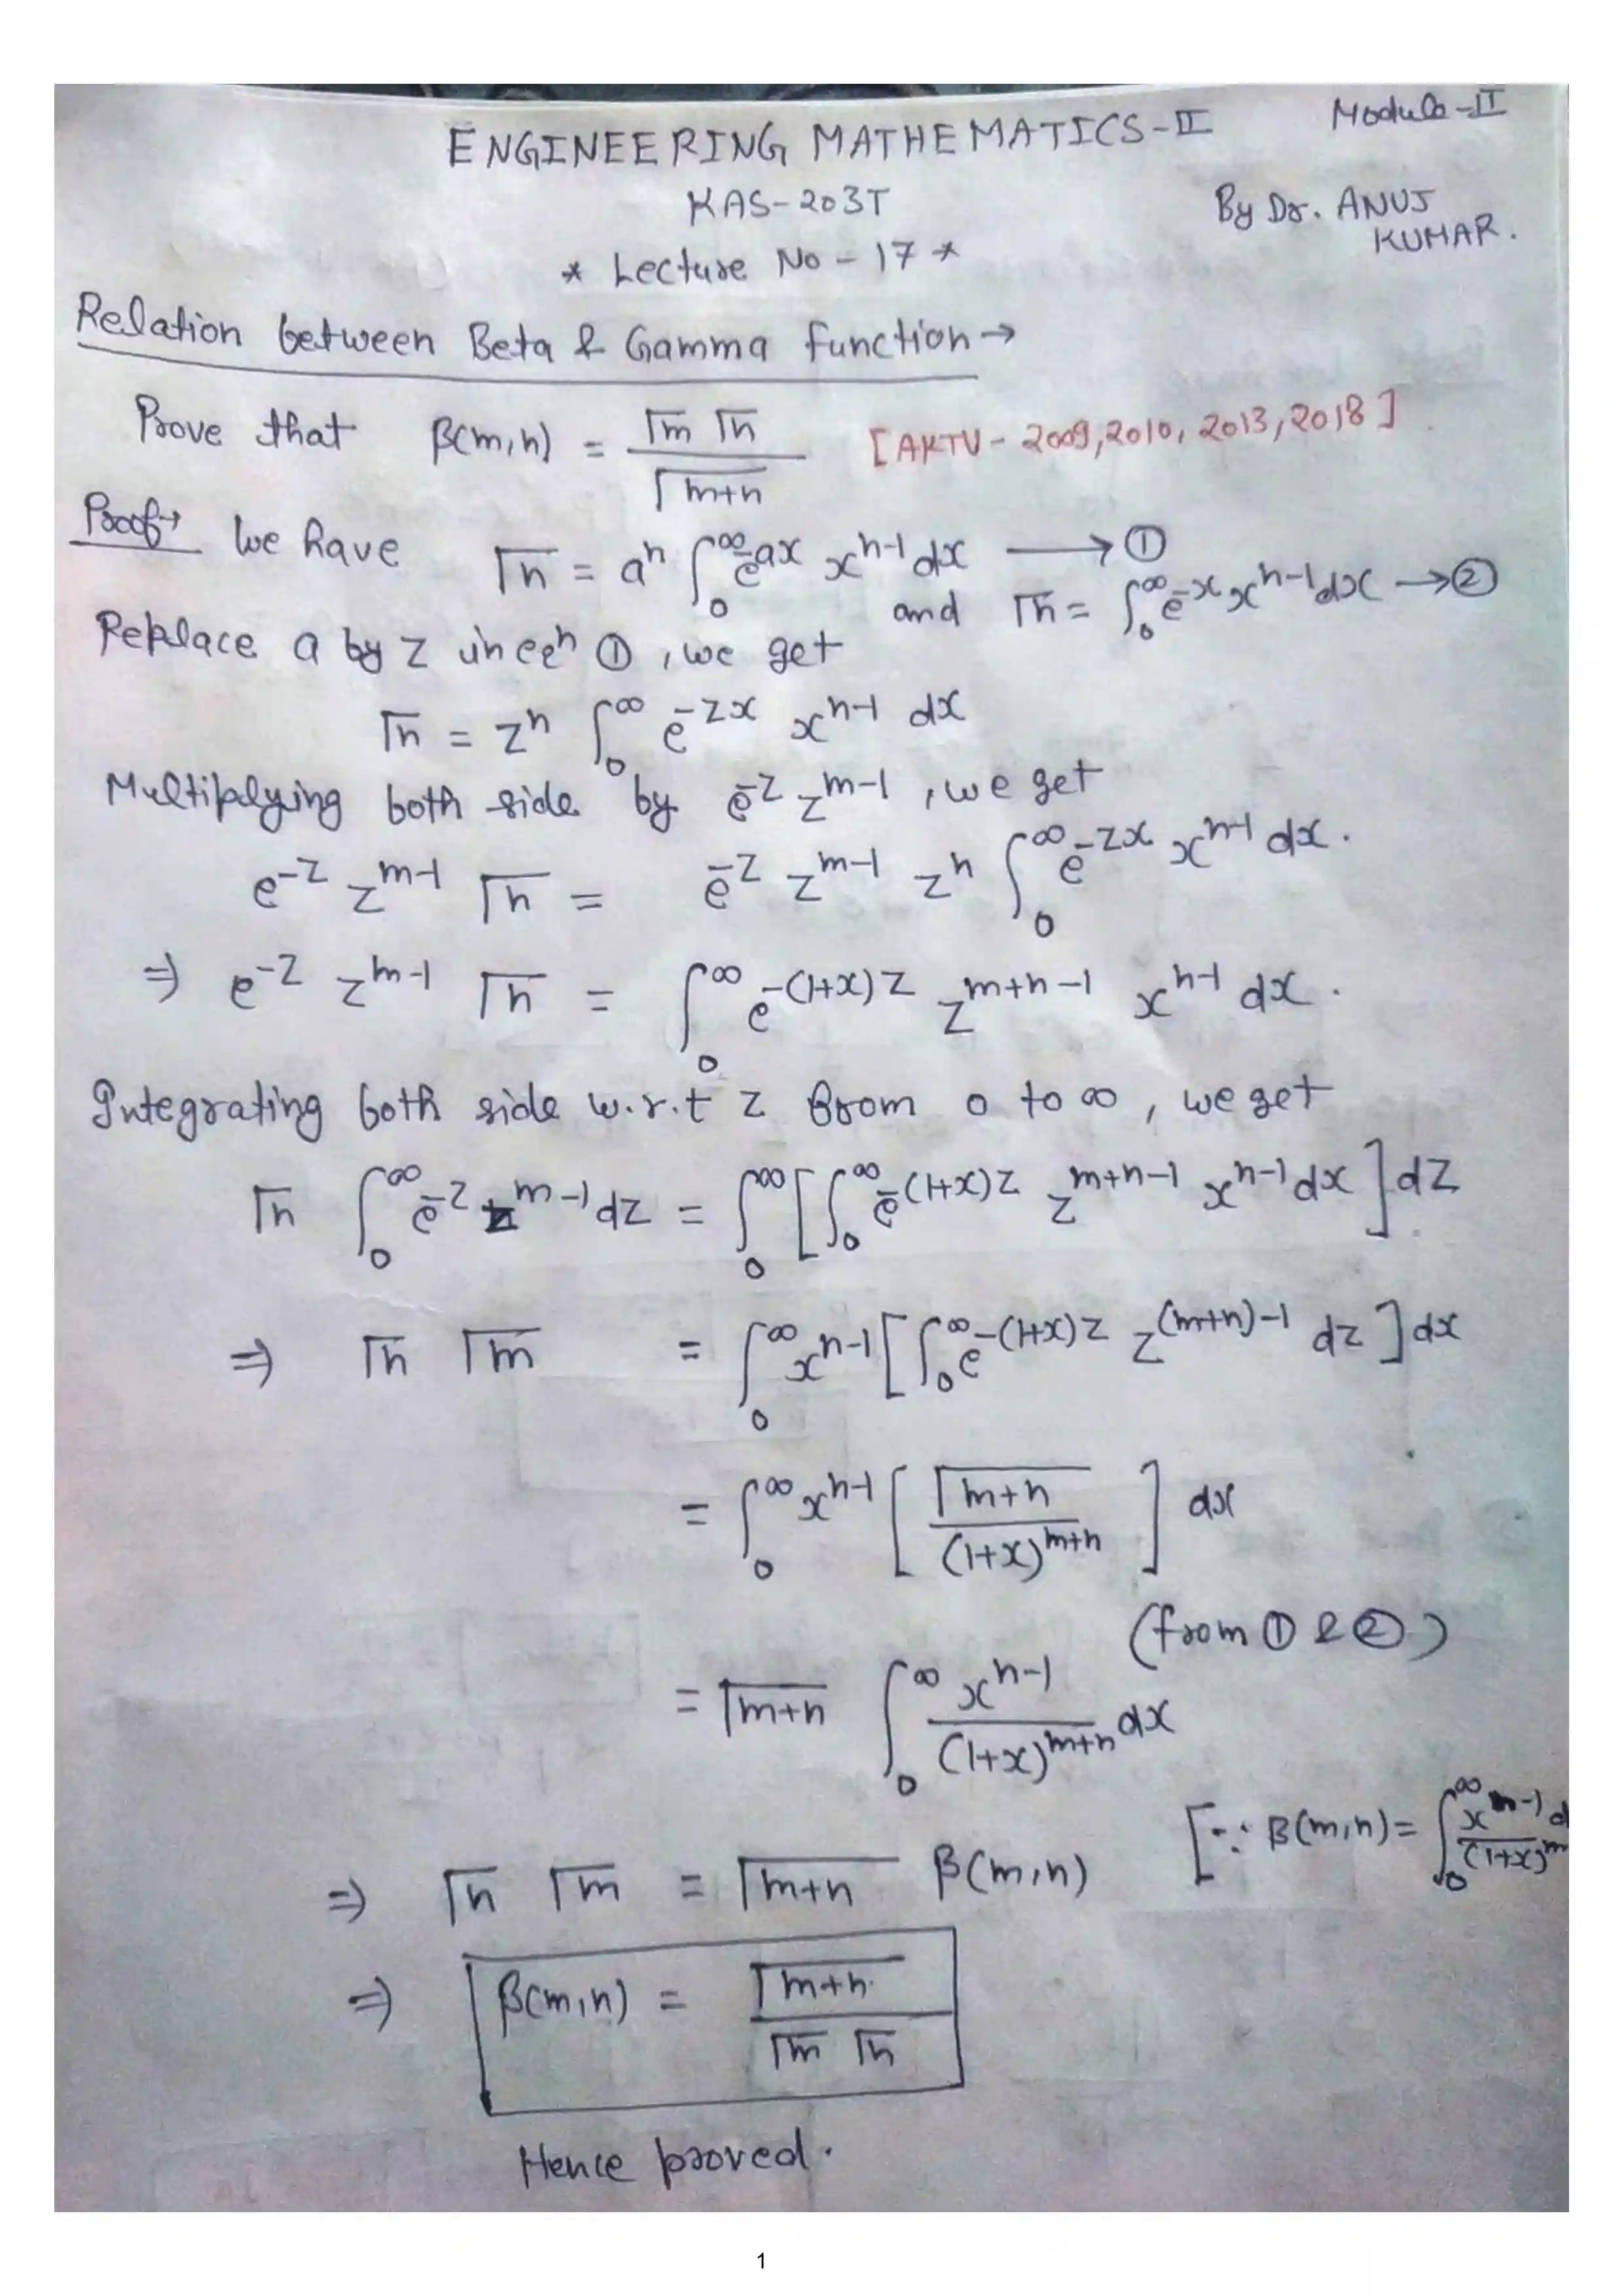 ENGINEERING MATHEMATICS-II Module-II
KAS-203T By Dr. ANUJ
KUMAR.
* Lecture No - 17 *
Relation between Beta & Gamma function→
Prove that β(m,n) = Γm Γn / Γm+n [AKTU - 2009, 2010, 2013, 2018]
Proof→ We have Γn = aⁿ ∫₀^∞ e^-ax x^n-1 dx ⟶ ①
and Γn = ∫₀^∞ e^-x x^n-1 dx → ②
Replace a by z in eqⁿ ①, we get
Γn = zⁿ ∫₀^∞ e^-zx x^n-1 dx
Multiplying both side by e^-z z^m-1, we get
e^-z z^m-1 Γn = e^-z z^m-1 z^n ∫₀^∞ e^-zx x^n-1 dx.
⇒ e^-z z^m-1 Γn = ∫₀^∞ e^-(1+x)z z^m+n-1 x^n-1 dx.
Integrating both side w.r.t z from 0 to ∞, we get
Γn ∫₀^∞ e^-z z^m-1 dz = ∫₀^∞ [∫₀^∞ e^-(1+x)z z^m+n-1 x^n-1 dx] dz
⇒ Γn Γm = ∫₀^∞ x^n-1 [∫₀^∞ e^-(1+x)z z^(m+n)-1 dz] dx
= ∫₀^∞ x^n-1 [Γm+n / (1+x)^m+n] dx
(from ① & ②)
= Γm+n ∫₀^∞ x^n-1 / (1+x)^m+n dx
⇒ Γn Γm = Γm+n β(m,n) [∵ β(m,n) = ∫₀^∞ x^m-1 d / (1+x)^m
⇒ β(m,n) = Γm+n / Γm Γn
Hence proved.
1